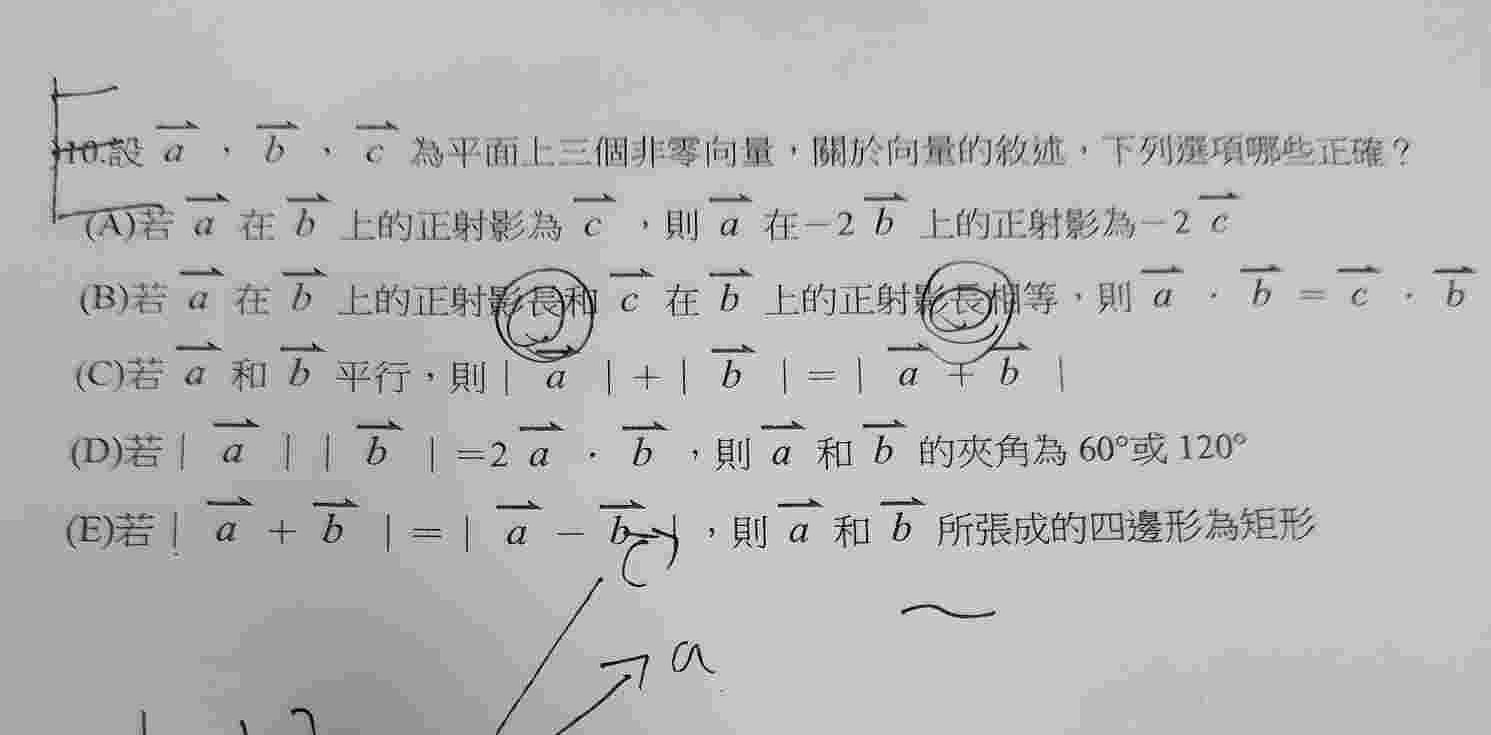 10.設 a⃗，b⃗，c⃗ 為平面上三個非零向量，關於向量的敘述，下列選項哪些正確？
(A)若 a⃗ 在 b⃗ 上的正射影為 c⃗ ，則 a⃗ 在－2 b⃗ 上的正射影為－2 c⃗
(B)若 a⃗ 在 b⃗ 上的正射影長和 c⃗ 在 b⃗ 上的正射影長相等，則 a⃗ · b⃗ = c⃗ · b⃗
(C)若 a⃗ 和 b⃗ 平行，則 | a⃗ | + | b⃗ | = | a⃗ + b⃗ |
(D)若 | a⃗ | | b⃗ | =2 a⃗ · b⃗ ，則 a⃗ 和 b⃗ 的夾角為 60°或 120°
(E)若 | a⃗ + b⃗ | = | a⃗ － b⃗ | ，則 a⃗ 和 b⃗ 所張成的四邊形為矩形
a